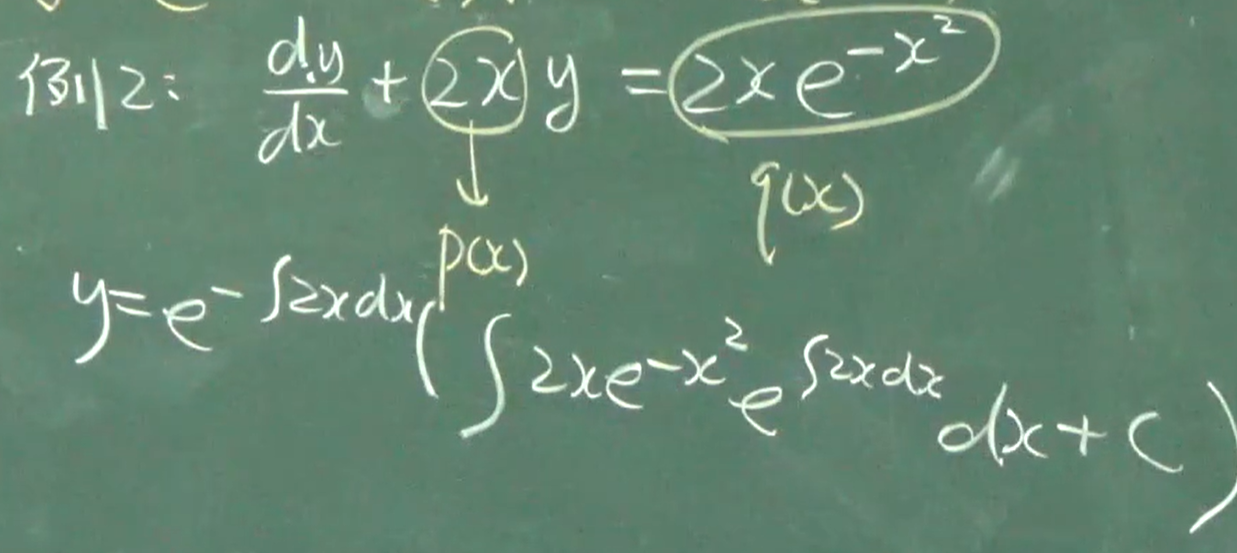 例2: dy/dx + 2x y = 2xe^{-x^2}
p(x) q(x)
y=e^{-∫2xdx}(∫2xe^{-x^2}e^{∫2xdx}dx+C)